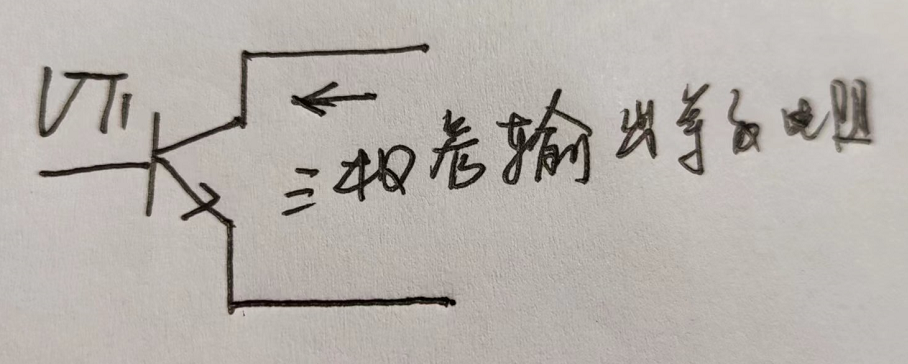 VT1
三极管输出等效电阻